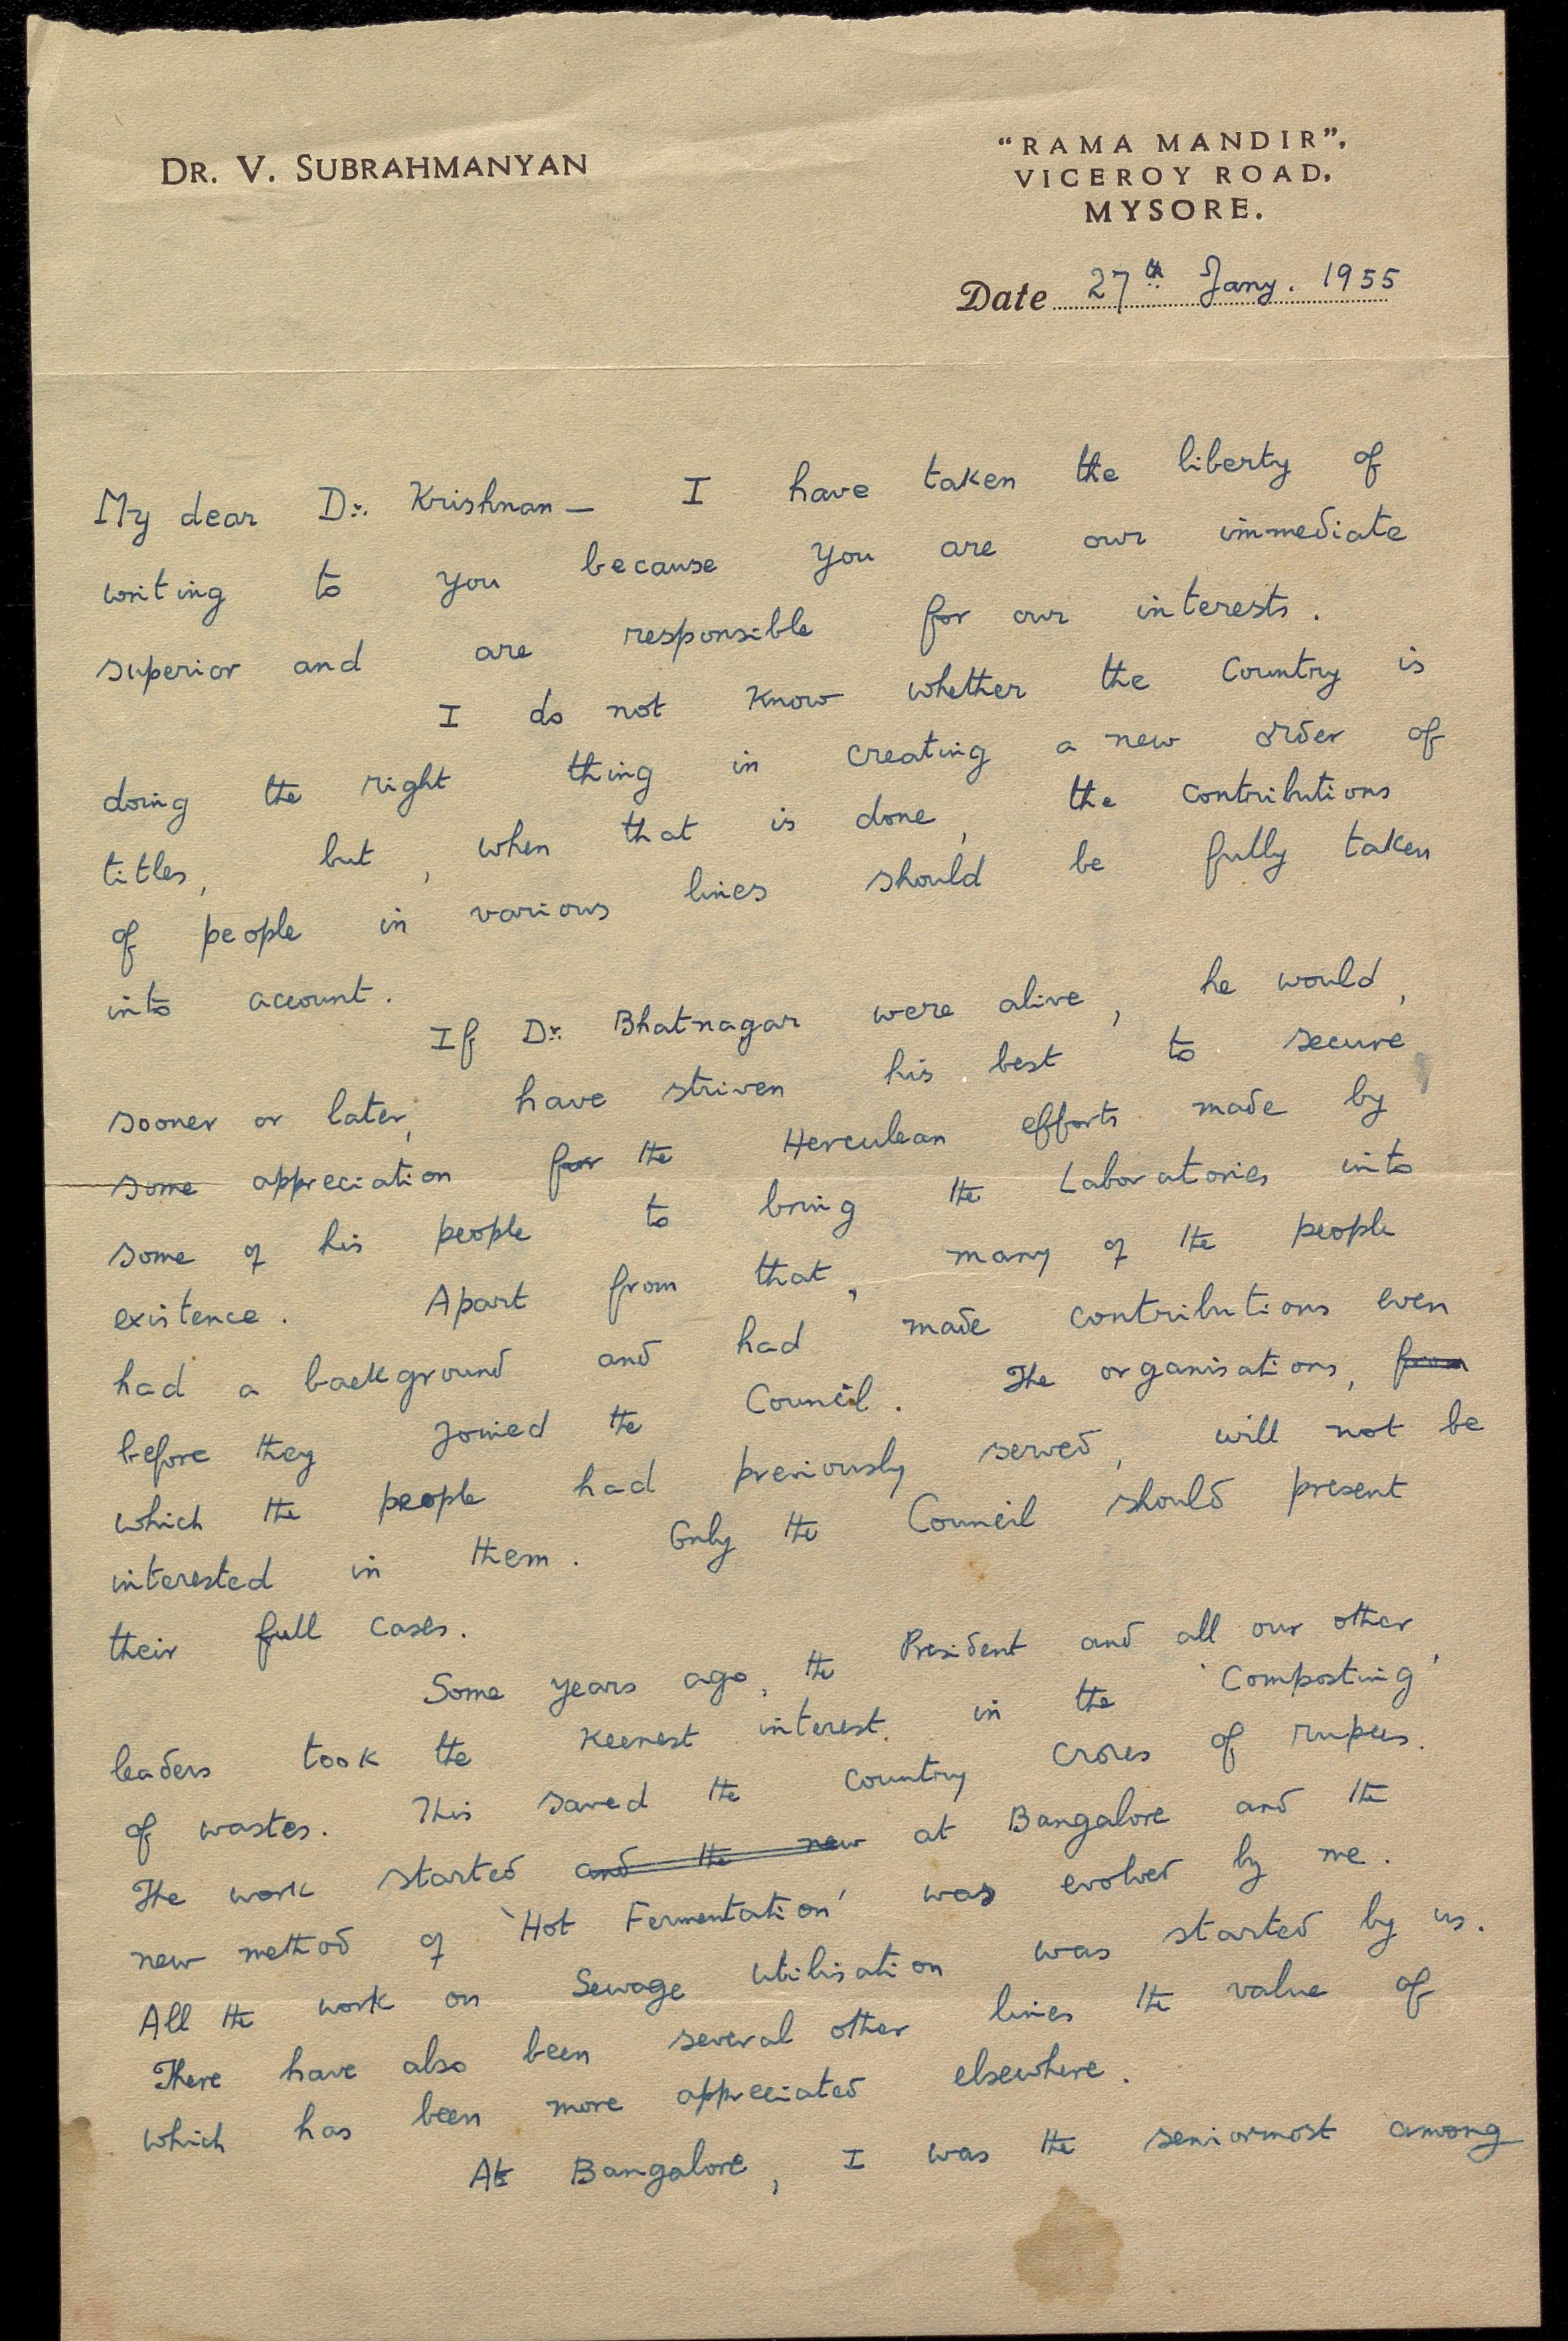 DR. V. SUBRAHMANYAN
"RAMA MANDIR",
VICEROY ROAD,
MYSORE.
Date 27th Jany. 1955
My dear Dr. Krishnan — I have taken the liberty of
writing to you because you are our immediate
superior and are responsible for our interests.
I do not know whether the country is
doing the right thing in creating a new order of
titles, but, when that is done, the contributions
of people in various lines should be fully taken
into account.
If Dr. Bhatnagar were alive, he would,
sooner or later, have striven his best to secure
some appreciation for the Herculean efforts made by
some of his people to bring the Laboratories into
existence. Apart from that, many of the people
had a background and had made contributions even
before they joined the Council. The organisations, from
which the people had previously served, will not be
interested in them. Only the Council should present
their full cases.
Some years ago, the President and all our other
leaders took the keenest interest in the 'Composting'
of wastes. This saved the country crores of rupees.
The work started and the new at Bangalore and the
new method of 'Hot Fermentation' was evolved by me.
All the work on Sewage utilisation was started by us.
There have also been several other lines the value of
which has been more appreciated elsewhere.
At Bangalore, I was the seniormost among